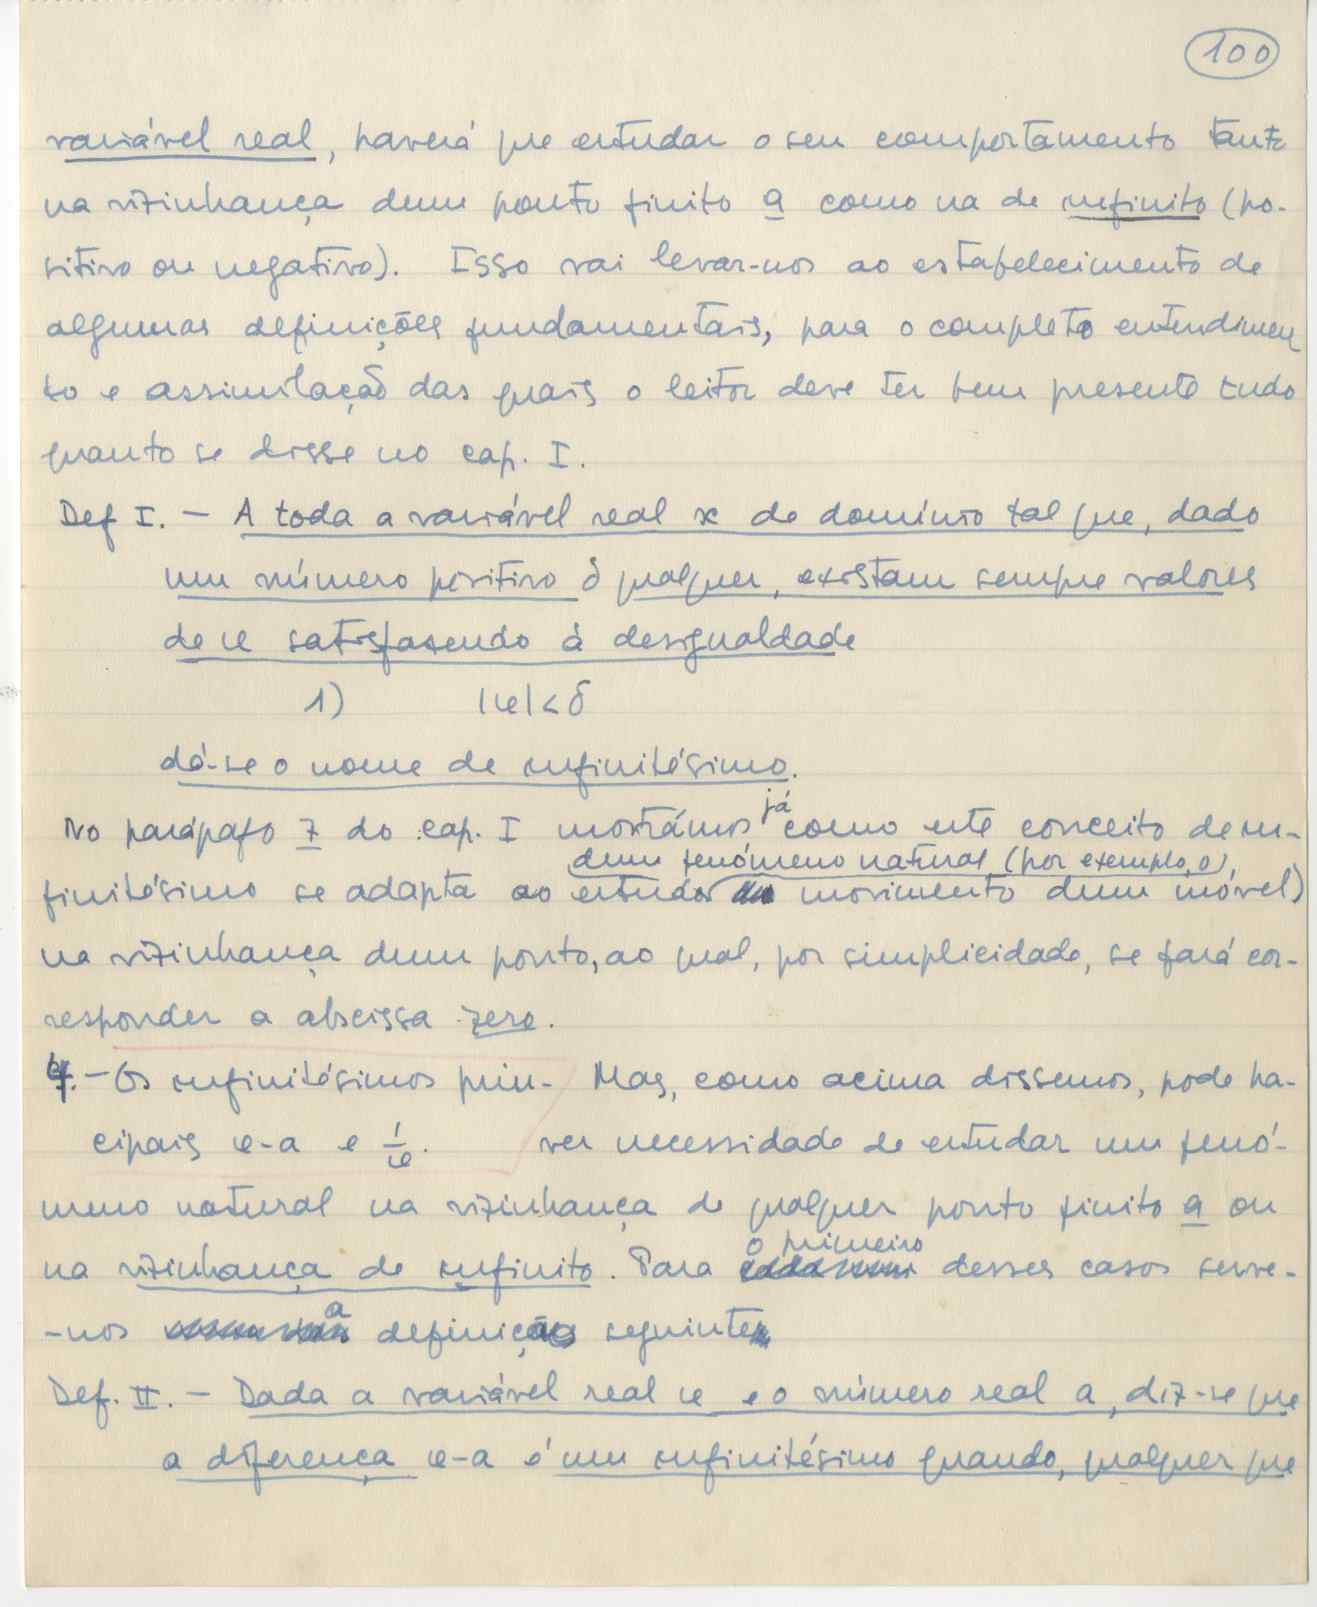 100
variável real, haverá que estudar o seu comportamento tanto
na vizinhança dum ponto finito a como na de infinito (po-
sitivo ou negativo). Isso vai levar-nos ao estabelecimento de
algumas definições fundamentais, para o completo entendimen
to e assimilação das quais o leitor deve ter bem presente tudo
quanto se disse no cap. I.
Def I. — A toda a variável real x de domínio tal que, dado
um número positivo δ qualquer, existam sempre valores
de x satisfazendo à desigualdade
1) |x| < δ
dá-se o nome de infinitésimo.
No parágrafo 7 do cap. I mostrámos já como este conceito de in-
dum fenómeno natural (por exemplo, o)
finitésimo se adapta ao estudo movimento dum móvel)
na vizinhança dum ponto, ao qual, por simplicidade, se fará cor-
responder a abscissa zero.
4. — Os infinitésimos prin- Mas, como acima dissemos, pode ha-
cipais x-a e 1/x. ver necessidade de estudar um fenó-
meno natural na vizinhança de qualquer ponto finito a ou
o primeiro
na vizinhança de infinito. Para cada um desses casos serve-
-nos a definição seguinte
Def. II. — Dada a variável real x e o número real a, diz-se que
a diferença x-a é um infinitésimo quando, qualquer que